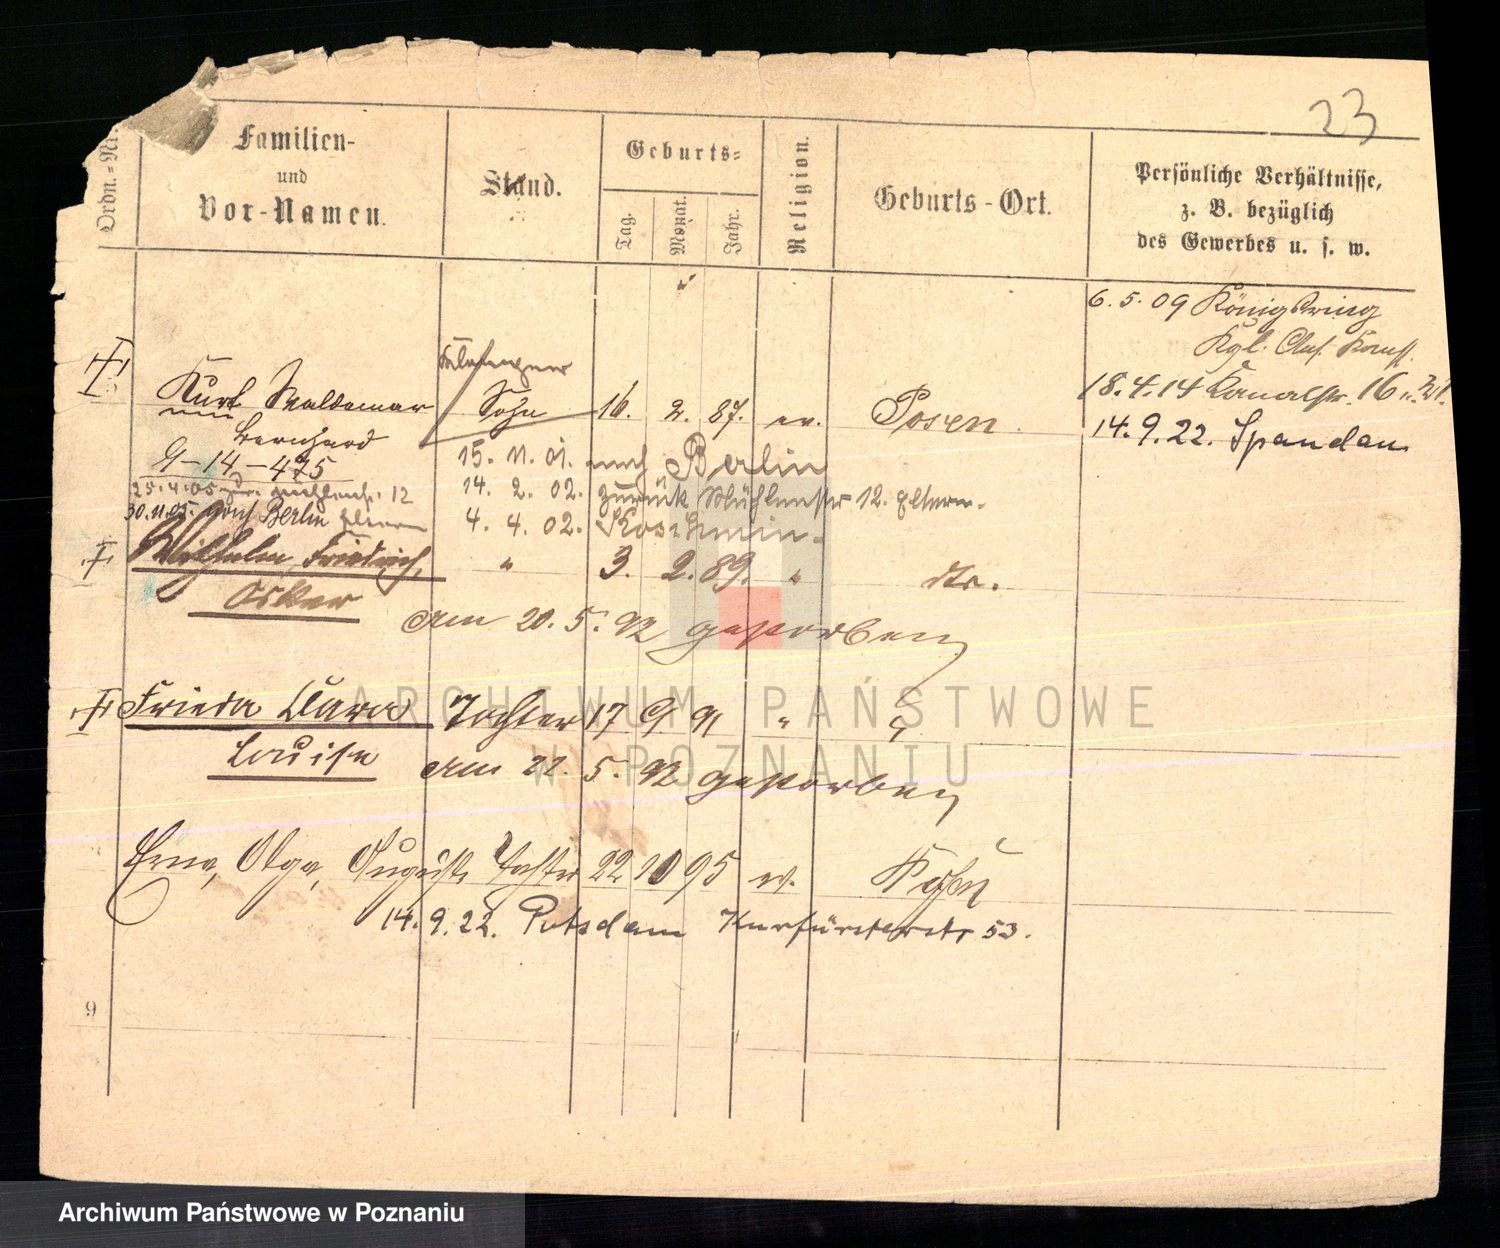 23
Ordn.-Nr.
Familien-
und
Vor-Namen.
Stand.
Geburts-
Tag.
Monat.
Jahr.
Religion.
Geburts-Ort.
Persönliche Verhältnisse,
z. B. bezüglich
des Gewerbes u. s. w.
6. 5. 09 Königsring
Kgl.
18. 4. 14 Kanalstr. 16
14. 9. 22. Spandau
Kurt Waldemar Sohn 16. 2. 87. ev. Posen
Bernhard
9-14-475
15. 11. 01. nach Berlin
25.4.05 12
14. 2. 02. zurück Mühlenstr 12. Eltern.
30.11.05. nach Berlin
4. 4. 02. Koschmin.
Wilhelm Friedrich, " 3. 2. 89. " dto.
Oskar
am 20. 5. 92 gestorben
Frieda Clara Tochter 17 9 91 "
Louise
am 22. 5. 92 gestorben
Erna, Olga, Auguste Tochter 22 10 95 ev.
14. 9. 22. Potsdam Kurfürsterstr 53.
9
ARCHIWUM PAŃSTWOWE
W POZNANIU
Archiwum Państwowe w Poznaniu